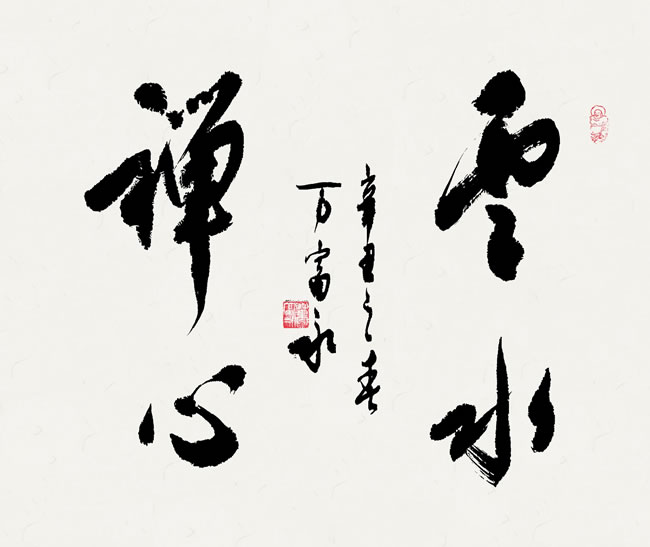 雲水
辛丑之春
万富永
禪心